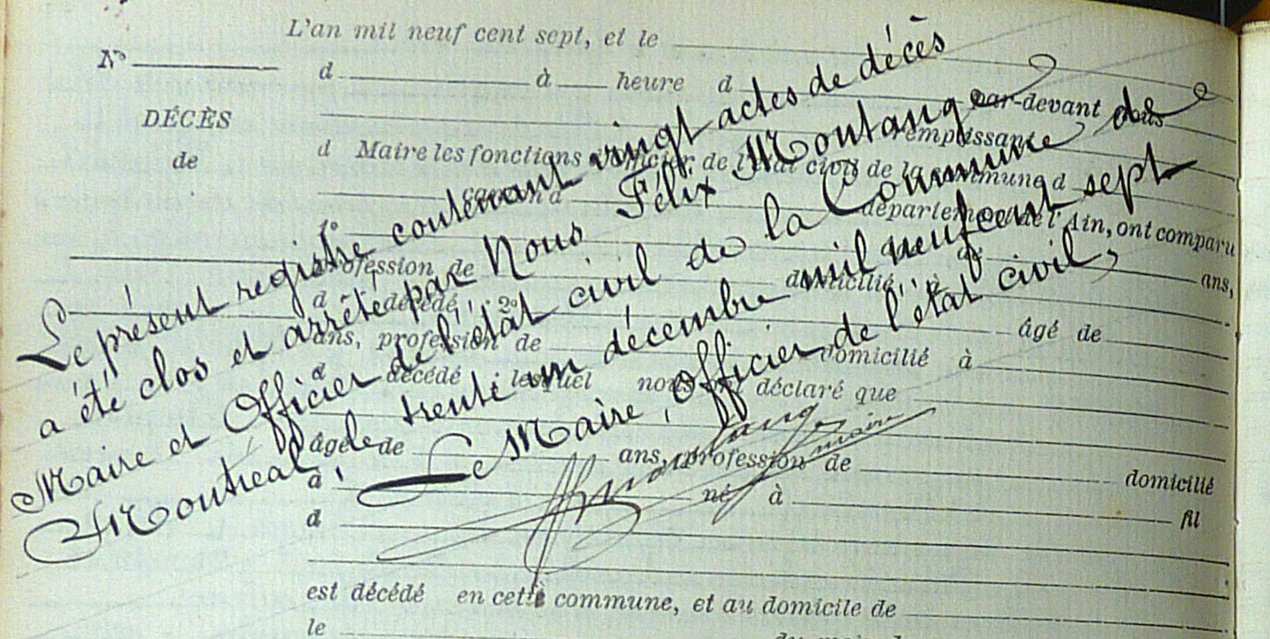 L'an mil neuf cent sept, et le
N°
d à heure d
DÉCÈS
par-devant nous
de
d Maire les fonctions d'officier de l'état civil de la commune d
remplissant
canton d
département de l'Ain, ont comparu
1°
profession de
domicilié à
ans,
d décédé, 2°
âgé de
ans, profession de
domicilié à
d décédé lesquel nous ont déclaré que
âgé de
ans, profession de
domicilié
à
né à
d
fil
est décédé en cette commune, et au domicile de
le
Le présent registre contenant vingt actes de décès
a été clos et arrêté par Nous Félix Montange
Maire et Officier de l'état civil de la Commune de
Montreal, le trente un décembre mil neuf cent sept
Le Maire, Officier de l'état civil,
Montange
maire